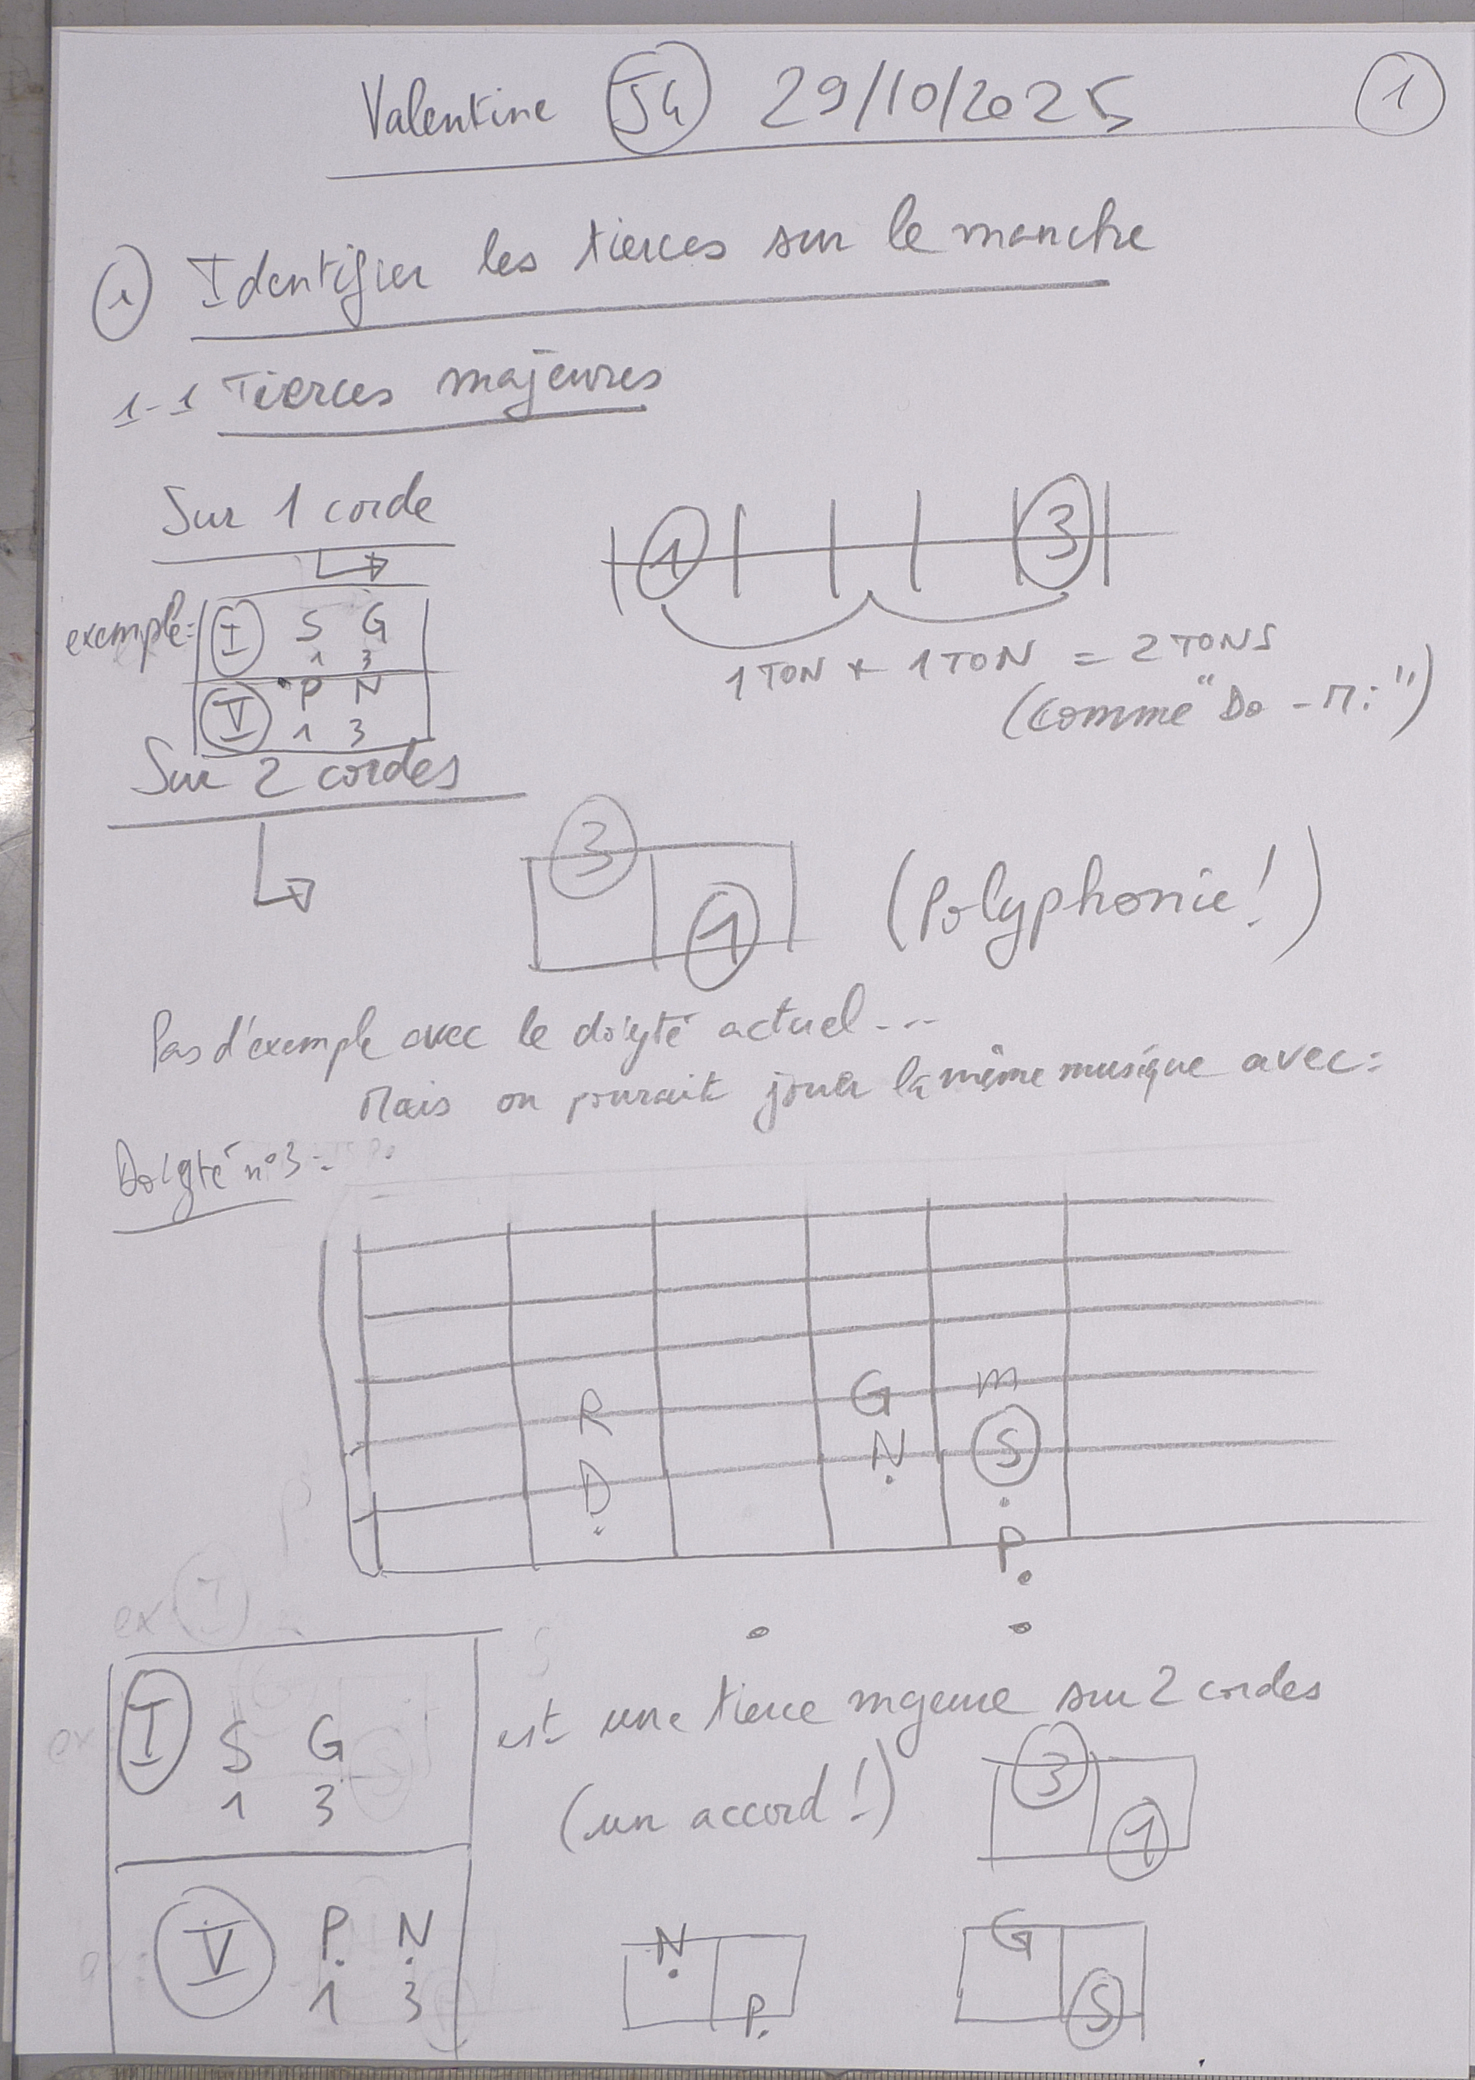 Valentine 54 29/10/2025 1
1 Identifier les tierces sur le manche
1-1 Tierces majeures
Sur 1 corde
1 3
exemple:
I S G
1 3
V P N
1 3
1 TON + 1 TON = 2 TONS
(comme "Do - Mi")
Sur 2 cordes
3
1
(Polyphonie!)
Pas d'exemple avec le doigté actuel...
Mais on pourait jouer la même musique avec:
Doigté n°3:
R G m
D N S
P
I S G
1 3
est une tierce mgeure sur 2 cordes
(un accord!)
3
1
V P N
1 3
N
P
G
S